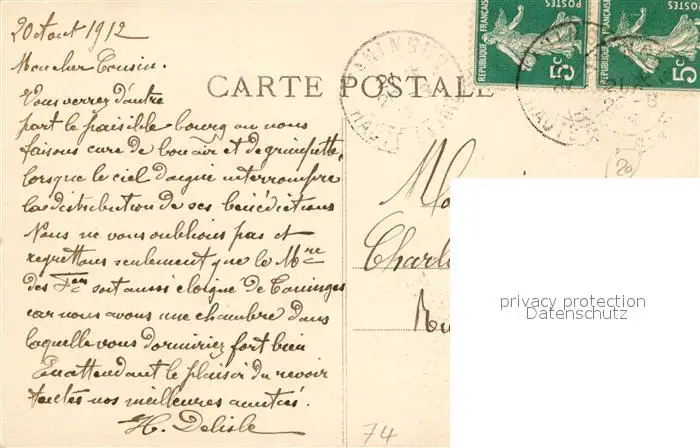 20 Aout 1912
Mon cher Cousin.
Vous verrez d'autre
part le paisible bourg ou nous
faisons cure de bon air et de grimpette,
lorsque le ciel daigne interrompre
la distribution de ses bénédictions
Nous ne vous oublions pas et
regrettons seulement que le Mre
des Fces soit aussi éloigné de Taninges
car nous avons une chambre dans
laquelle vous dormiriez fort bien
En attendant le plaisir du revoir
toutes nos meilleures amitiés.
H. Delisle
CARTE POSTALE
TANINGES
HAUTE
REPUBLIQUE FRANÇAISE
POSTES
5c
REPUBLIQUE FRANÇAISE
POSTES
5c
Charl
74
privacy protection
Datenschutz